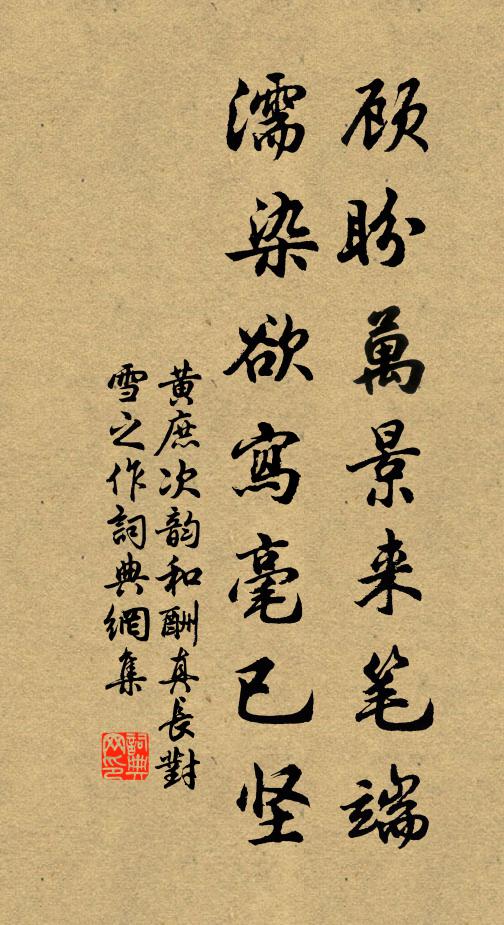 顾盼萬景来笔端
濡染欲寫毫已坚
黄庶次韵和酬真長對
雪之作詞典網集
詞典网印